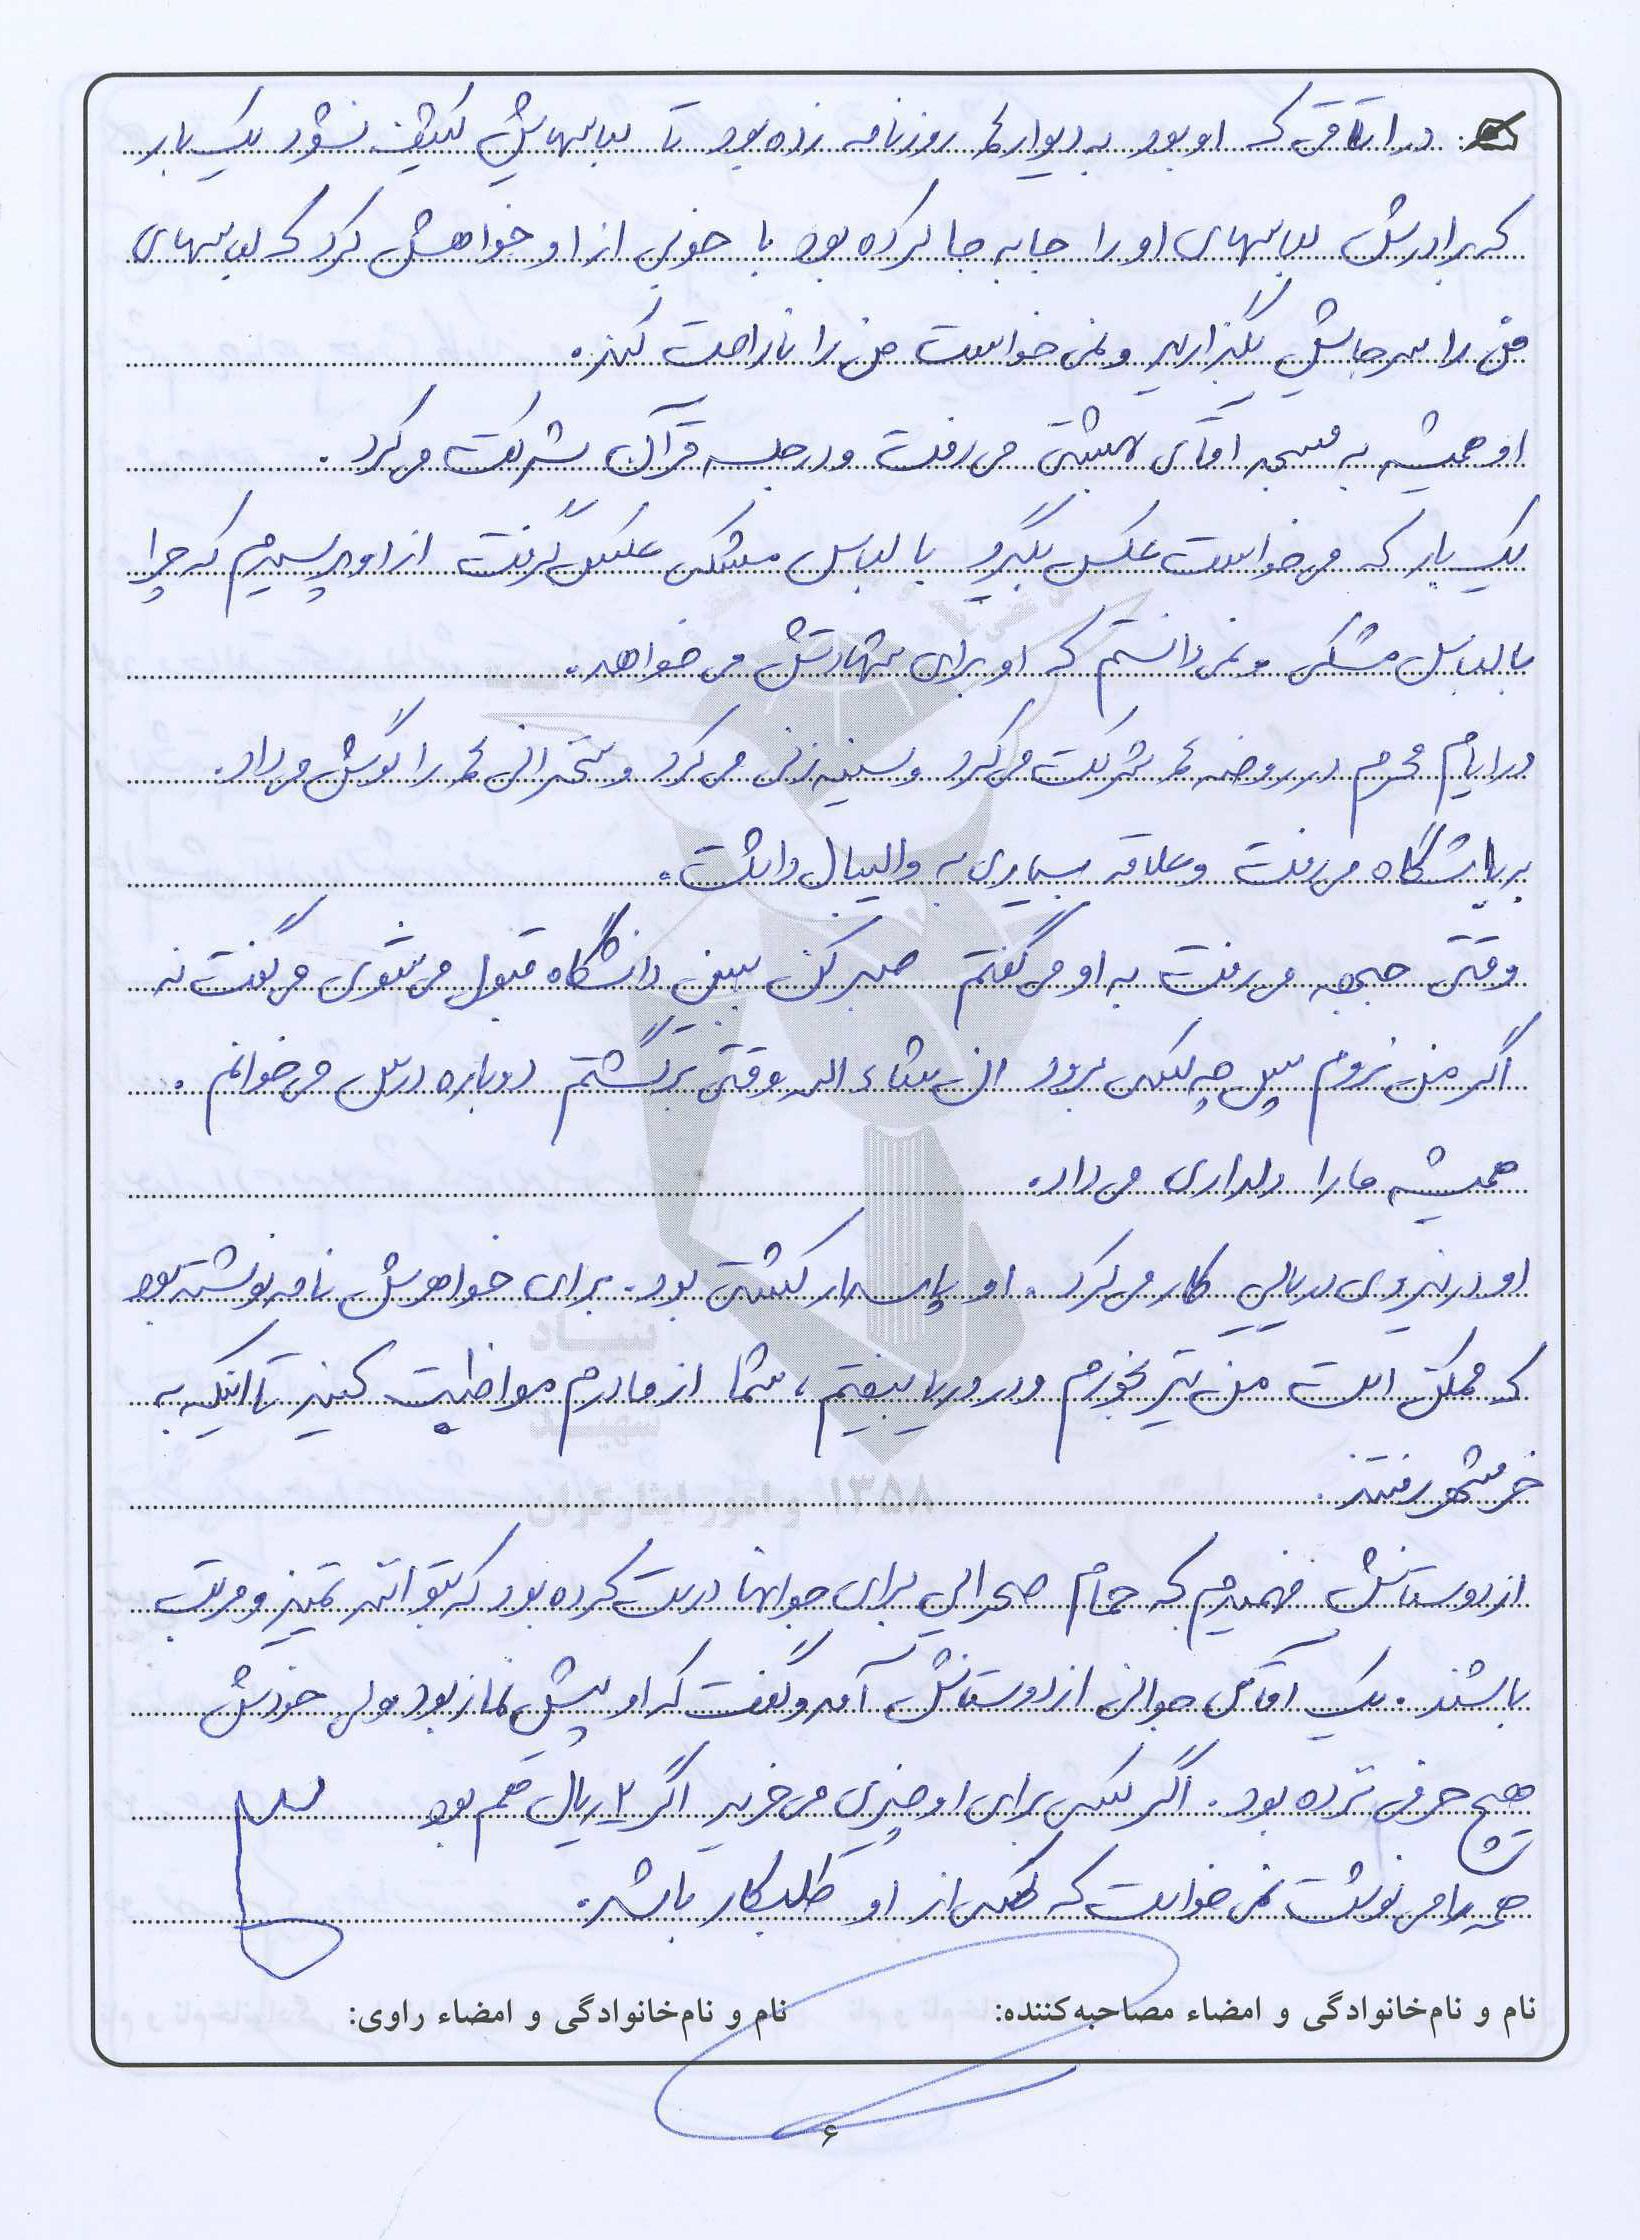 در اتاقی که او بود به دیوارها روزنامه زده بود تا لباسهایش کثیف نشود یک بار
که برادرش لباسهای او را جا به جا کرده بود با خوبی از او خواهش کرد که لباسهای
من را سر جایش بگذارید و نمی خواست من را ناراحت کند.
او همیشه به مسجد آقای بهشتی می رفت و در جلسه قرآن شرکت می کرد.
یک بار که می خواست عکس بگیرد با لباس مشکی عکس گرفت از او پرسیدم که چرا
با لباس مشکی و نمی دانستم که او برای شهادتش می خواهد.
در ایام محرم در روضه ها شرکت می کرد و سینه زنی می کرد و سخنرانی ها را گوش می داد.
به باشگاه می رفت و علاقه بسیاری به والیبال داشت.
وقتی جبهه می رفت به او می گفتم صبر کن ببین دانشگاه قبول می شوی می گفت نه
اگر من نروم پس چه کسی برود ان شاء الله وقتی برگشتم دوباره درس می خوانم.
همیشه ما را دلداری می داد.
او در نیروی دریایی کار می کرد. او پاسدار کشتی بود. برای خواهرش نامه نوشته بود
که ممکن است من تیر بخورم و در دریا بیفتم، شما از مادرم مواظبت کنید تا اینکه به
خرمشهر رفتند.
از دوستانش فهمیدم که حمام صحرایی برای جوانها درست کرده بود که بتوانند تمیز و مرتب
باشند. یک آقای جوانی از دوستانش آمد و گفت که او پیش نماز بود ولی خودش
هیچ حرفی نزده بود. اگر کسی برای او چیزی می خرید اگر ۲ ریال هم بود
همه را می نوشت نمی خواست که کسی از او طلبکار باشد.
نام و نام‌خانوادگی و امضاء مصاحبه‌کننده: نام و نام‌خانوادگی و امضاء راوی:
۶
بنیاد
شهید
و امور ایثارگران ۱۳۵۸